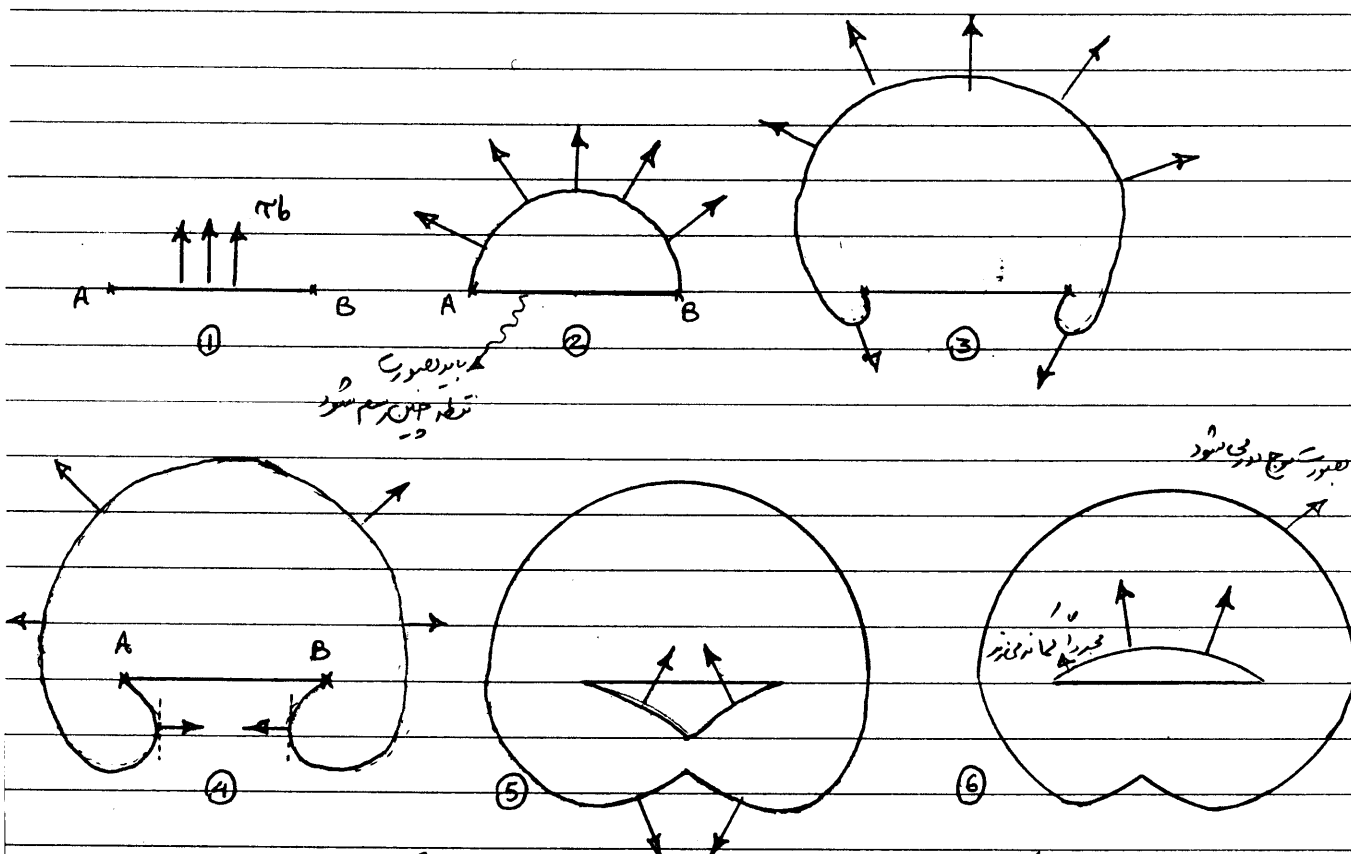 τb
A
B
①
A
B
②
باید بصورت
نقطه چین رسم شود
③
بصورت موج دور می شود
A
B
④
⑤
مجدداً کمانه می زند
⑥